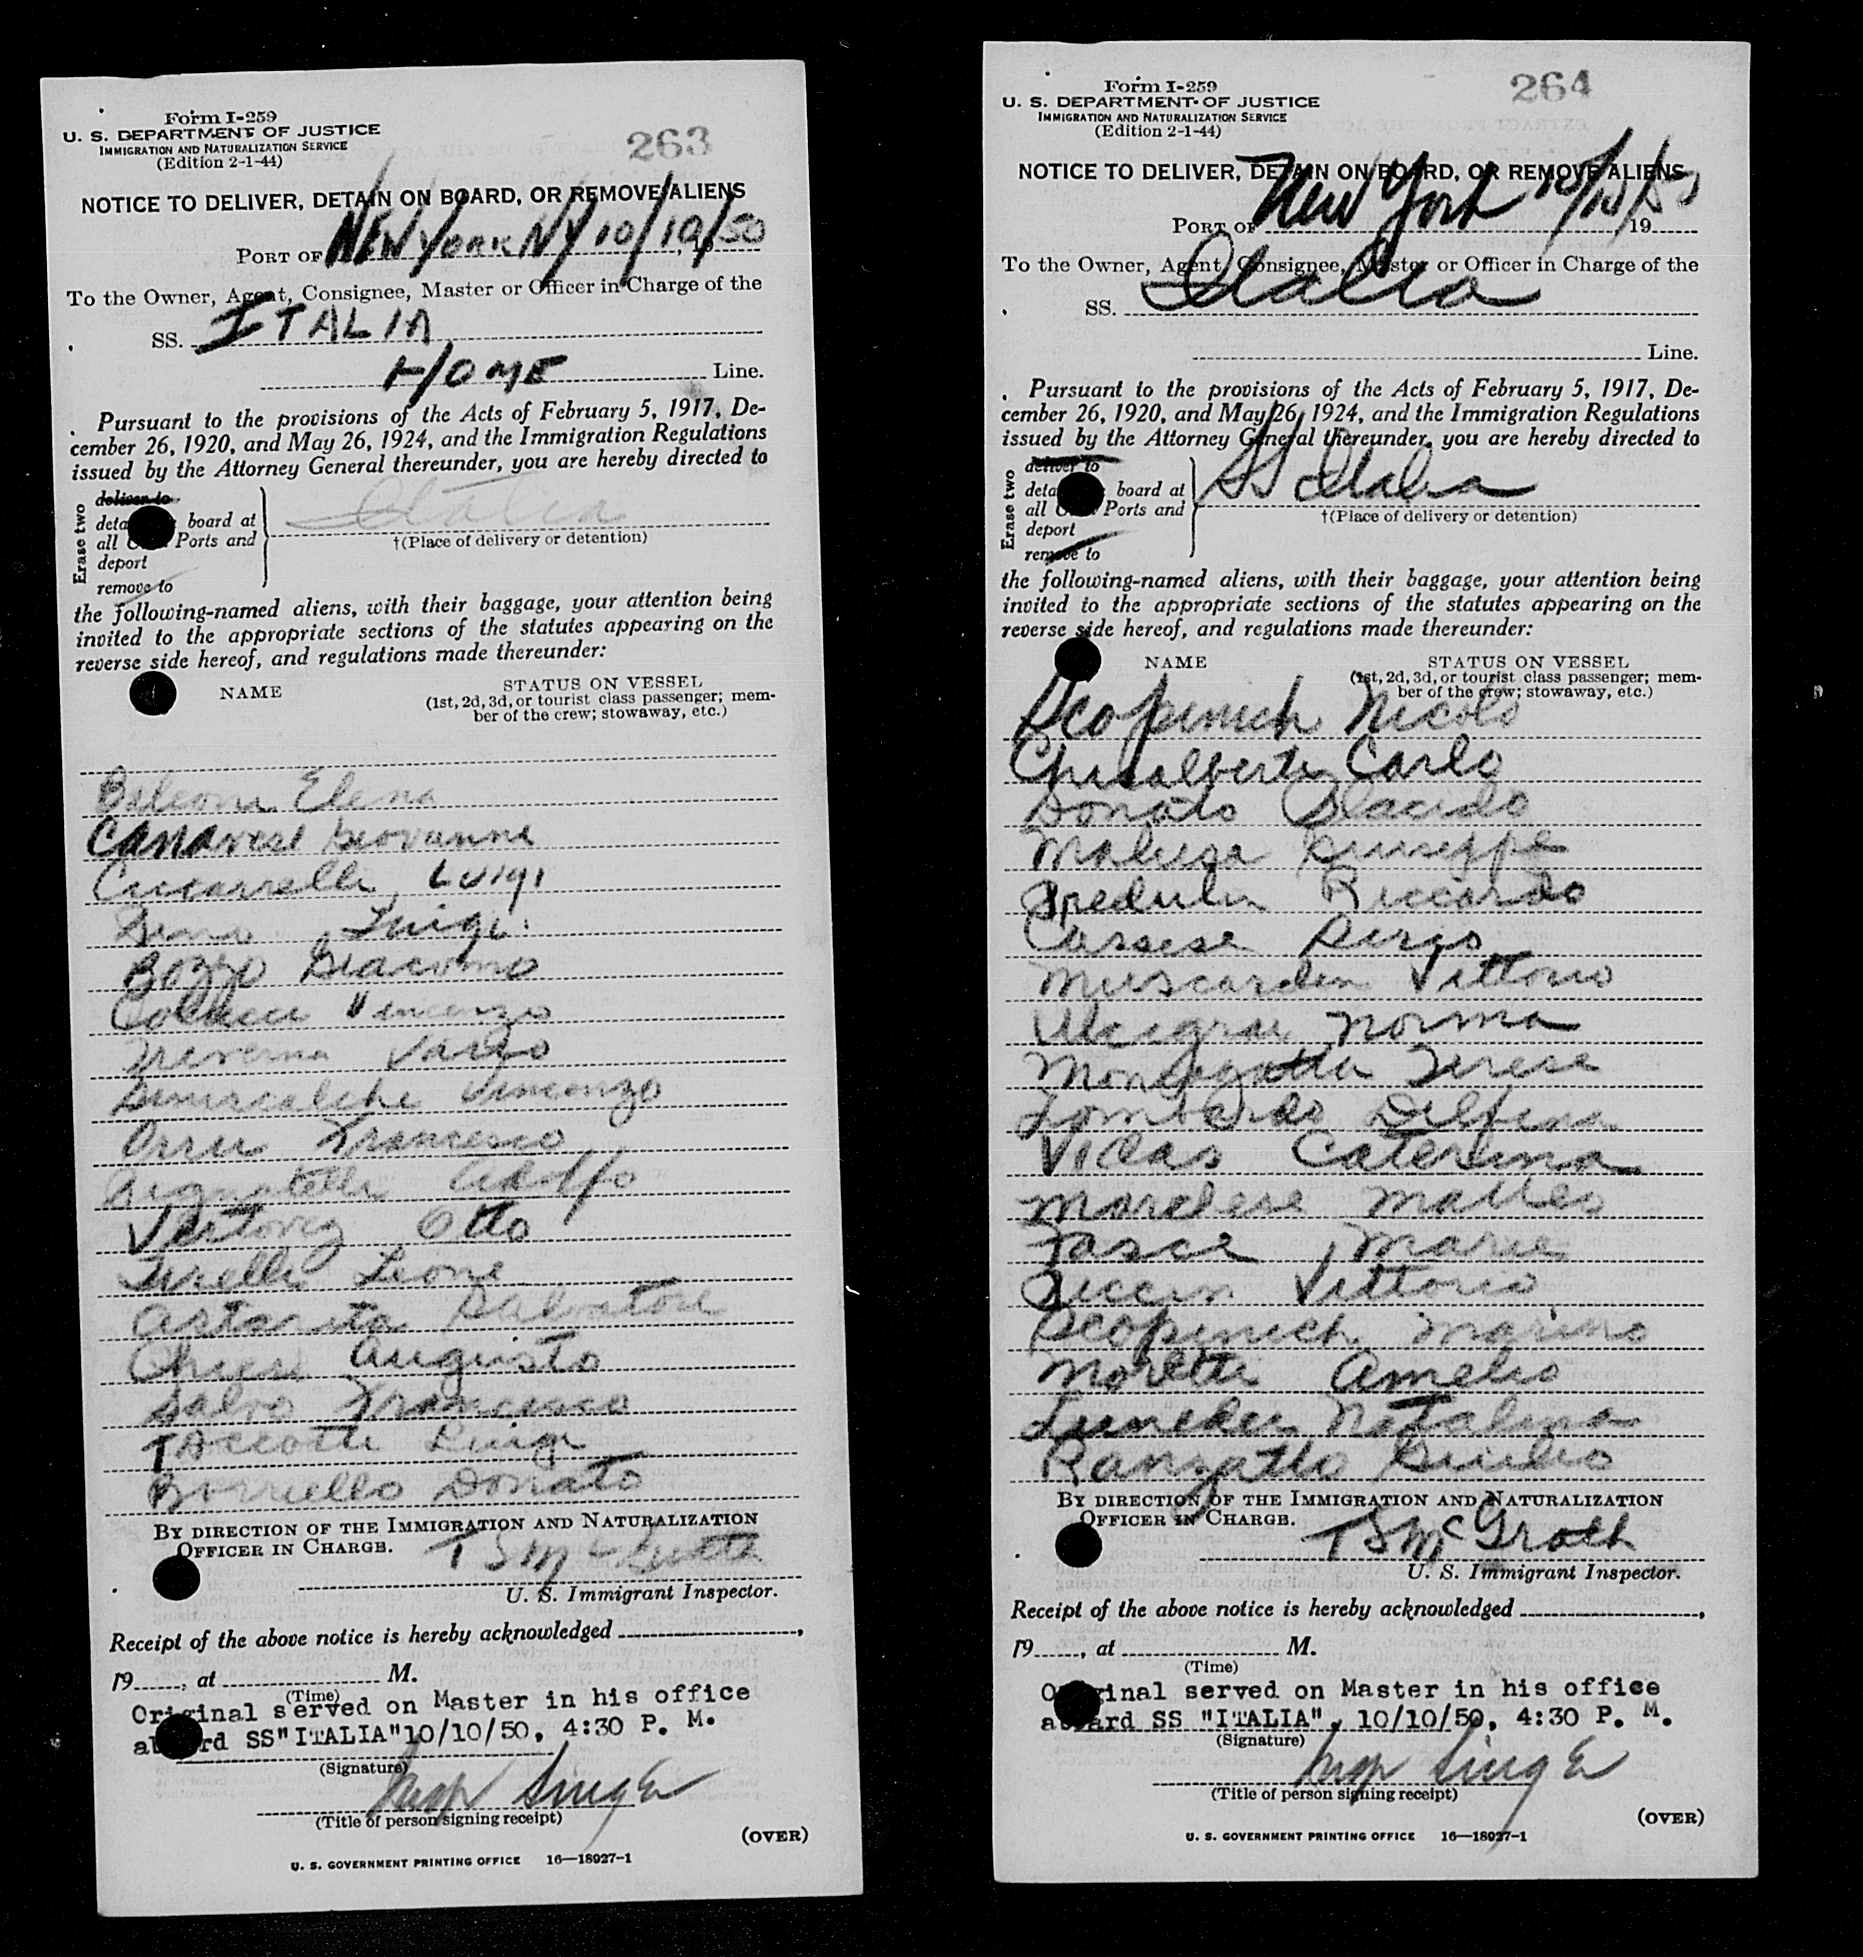 Form I-259
U. S. DEPARTMENT OF JUSTICE
IMMIGRATION AND NATURALIZATION SERVICE
(Edition 2-1-44)
263
NOTICE TO DELIVER, DETAIN ON BOARD, OR REMOVE ALIENS
PORT OF NEW YORK NY 10/10/50, 19
To the Owner, Agent, Consignee, Master or Officer in Charge of the
SS. ITALIA
HOME Line.
Pursuant to the provisions of the Acts of February 5, 1917, De-
cember 26, 1920, and May 26, 1924, and the Immigration Regulations
issued by the Attorney General thereunder, you are hereby directed to
Erase two
deliver to
board at
all Ports and
deport
remove to
Italia
†(Place of delivery or detention)
the following-named aliens, with their baggage, your attention being
invited to the appropriate sections of the statutes appearing on the
reverse side hereof, and regulations made thereunder:
NAME
STATUS ON VESSEL
(1st, 2d, 3d, or tourist class passenger; mem-
ber of the crew; stowaway, etc.)
Elena
Canavese Giovanni
Luigi
Luigi
Bozzo Giacomo
Vincenzo
Vincenzo
Orru Francesco
Pignatelli Adolfo
Otto
Leone
Astarita Salvatore
Chiesi Augusto
Salvo Francesco
Luigi
Borriello Donato
BY DIRECTION OF THE IMMIGRATION AND NATURALIZATION
OFFICER IN CHARGE.
T S McGrath
U. S. Immigrant Inspector.
Receipt of the above notice is hereby acknowledged
19, at M.
(Time)
Original served on Master in his office
aboard SS"ITALIA"10/10/50, 4:30 P. M.
(Signature)
Insp Singer
(Title of person signing receipt)
(OVER)
U. S. GOVERNMENT PRINTING OFFICE 16—18027-1
Form I-259
U. S. DEPARTMENT OF JUSTICE
IMMIGRATION AND NATURALIZATION SERVICE
(Edition 2-1-44)
264
NOTICE TO DELIVER, DETAIN ON BOARD, OR REMOVE ALIENS
PORT OF New York 10/10/50, 19
To the Owner, Agent, Consignee, Master or Officer in Charge of the
SS. Italia
Line.
Pursuant to the provisions of the Acts of February 5, 1917, De-
cember 26, 1920, and May 26, 1924, and the Immigration Regulations
issued by the Attorney General thereunder, you are hereby directed to
Erase two
deliver to
board at
all Ports and
deport
remove to
SS Italia
†(Place of delivery or detention)
the following-named aliens, with their baggage, your attention being
invited to the appropriate sections of the statutes appearing on the
reverse side hereof, and regulations made thereunder:
NAME
STATUS ON VESSEL
(1st, 2d, 3d, or tourist class passenger; mem-
ber of the crew; stowaway, etc.)
Scopinich Nicolo
Ghisalberti Carlo
Donato Placido
Malusa Giuseppe
Riccardo
Vittorio
Norma
Terese
Lombardo Delfina
Vidas Caterina
Marchese Matteo
Fasce Maria
Vittorio
Scopinich Marino
Moretti Amelio
Natalina
Ranzatto Giulio
BY DIRECTION OF THE IMMIGRATION AND NATURALIZATION
OFFICER IN CHARGE.
T S McGrath
U. S. Immigrant Inspector.
Receipt of the above notice is hereby acknowledged
19, at M.
(Time)
Original served on Master in his office
aboard SS "ITALIA", 10/10/50, 4:30 P. M.
(Signature)
Insp Singer
(Title of person signing receipt)
(OVER)
U. S. GOVERNMENT PRINTING OFFICE 16—18027-1